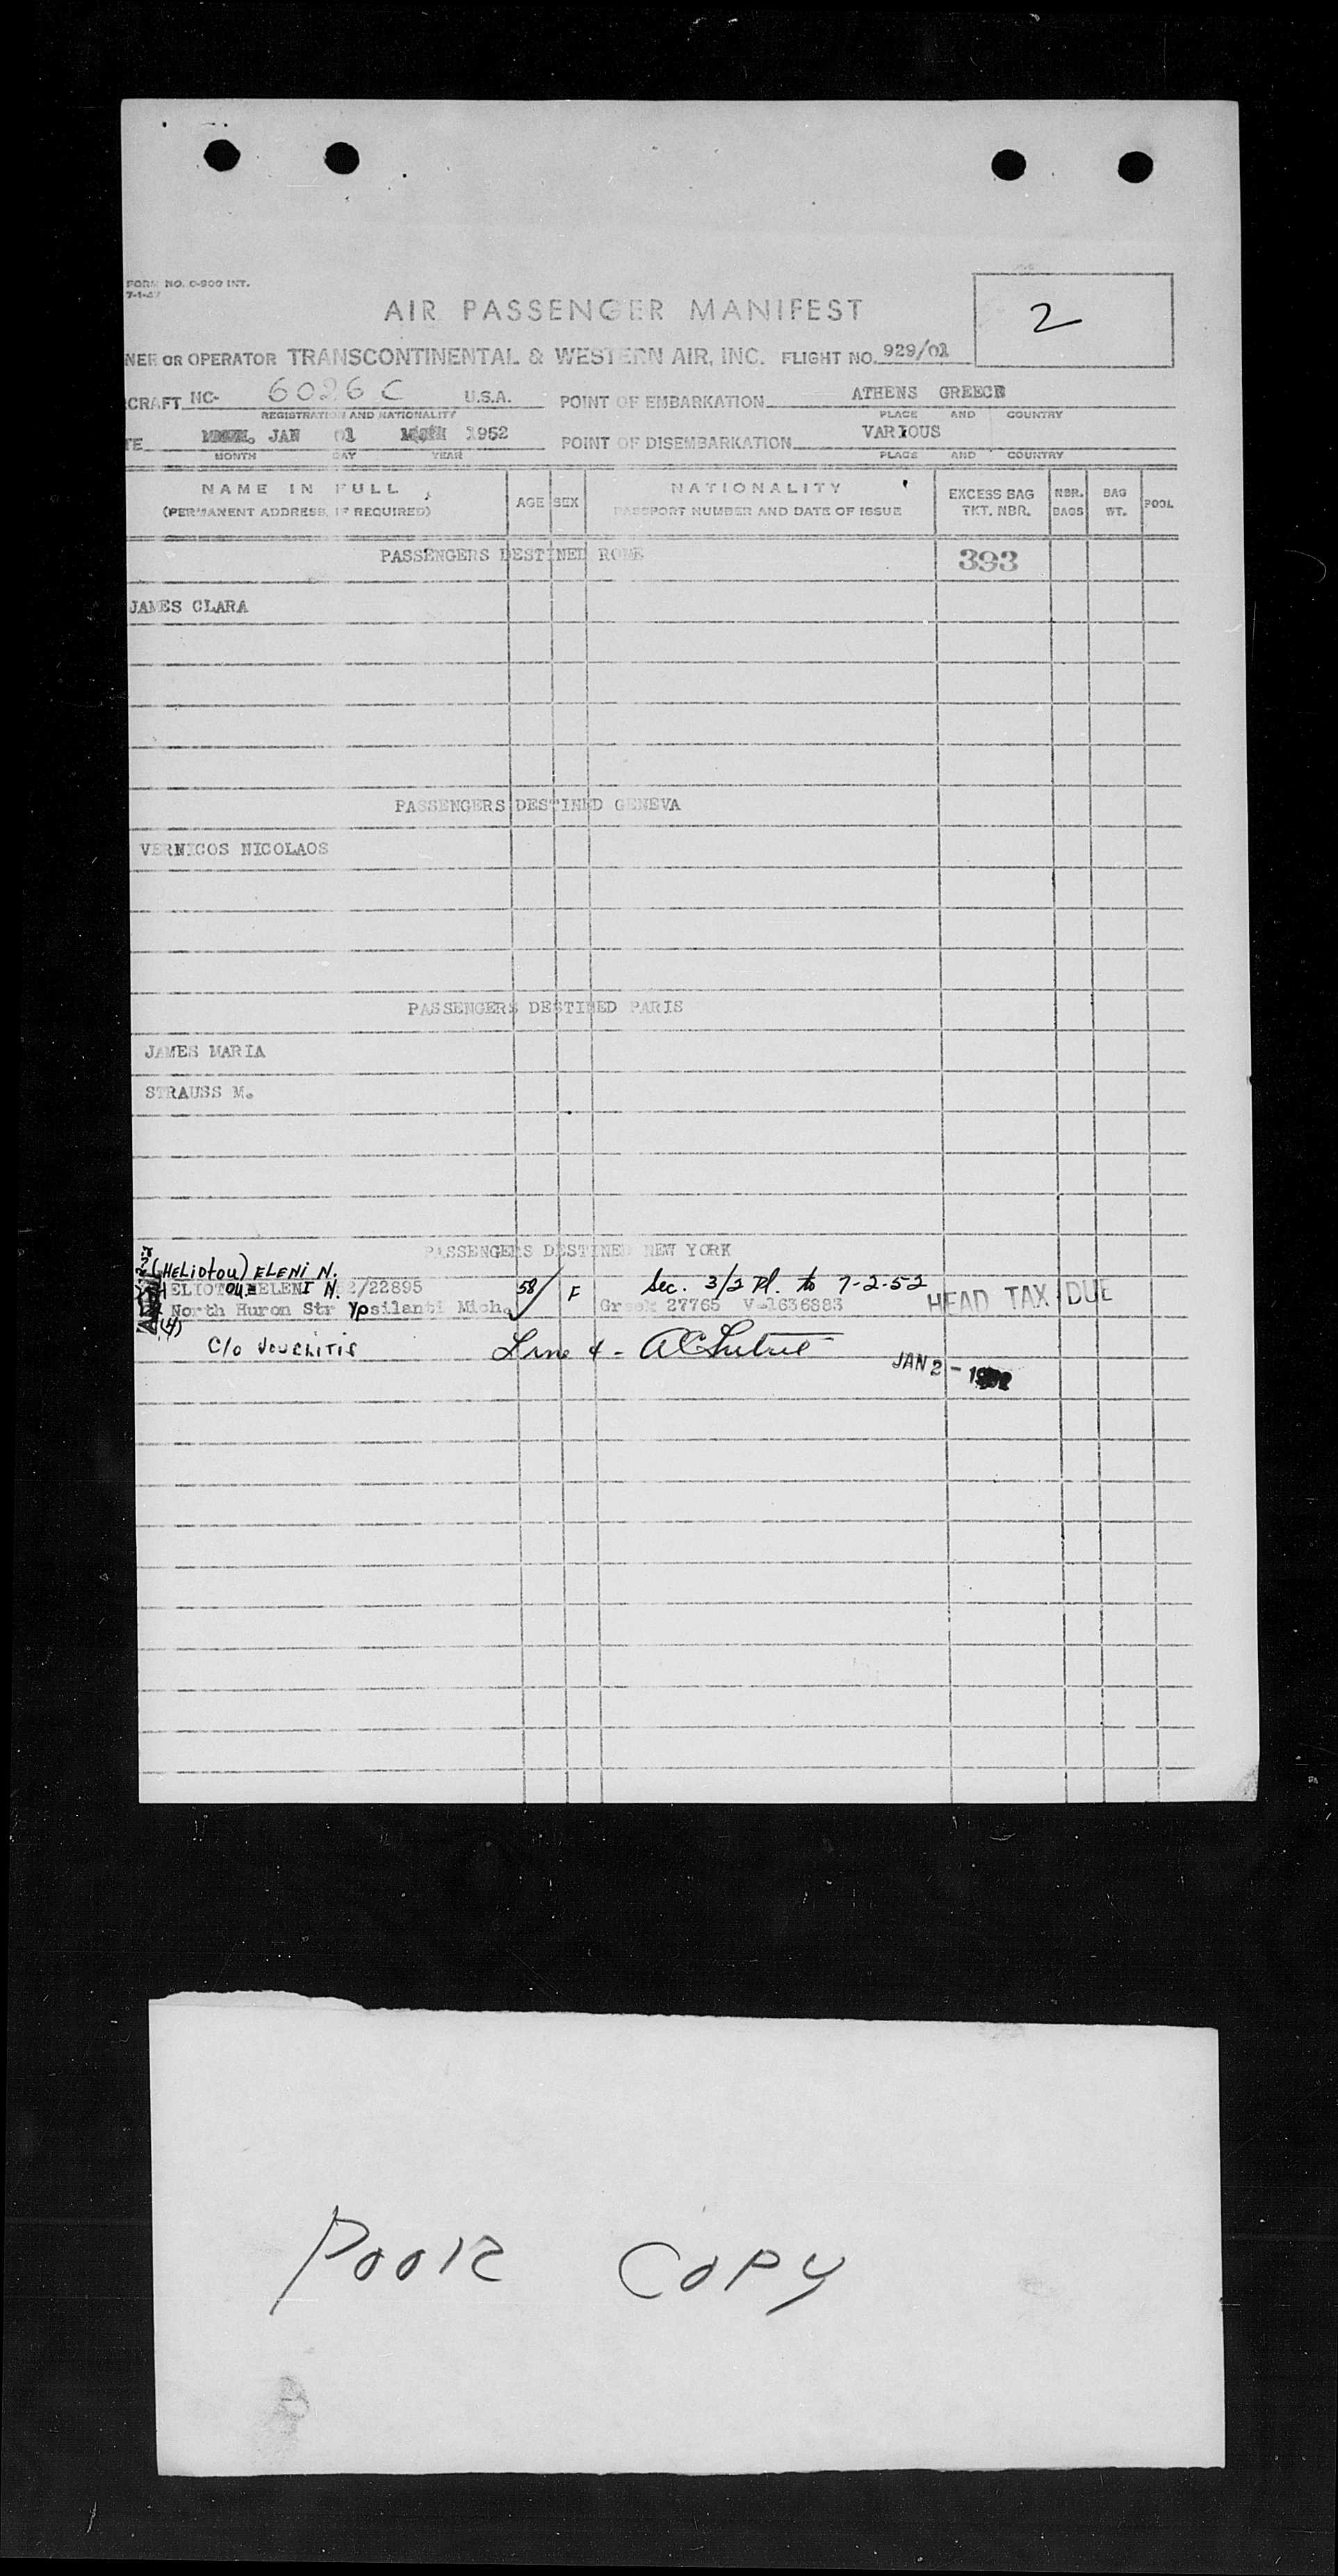 FORM NO. O-900 INT.
7-1-47
AIR PASSENGER MANIFEST
2
NER OR OPERATOR TRANSCONTINENTAL & WESTERN AIR, INC. FLIGHT NO. 929/01
CRAFT NC- 6026 C U.S.A. POINT OF EMBARKATION ATHENS GREECE
REGISTRATION AND NATIONALITY PLACE AND COUNTRY
TE JAN 01 1952 POINT OF DISEMBARKATION VARIOUS
MONTH DAY YEAR PLACE AND COUNTRY
NAME IN FULL AGE SEX NATIONALITY EXCESS BAG NBR. BAG POOL
(PERMANENT ADDRESS, IF REQUIRED) PASSPORT NUMBER AND DATE OF ISSUE TKT. NBR. BAGS WT.
PASSENGERS DESTINED ROME 393
JAMES CLARA
PASSENGERS DESTINED GENEVA
VERNICOS NICOLAOS
PASSENGERS DESTINED PARIS
JAMES MARIA
STRAUSS M.
PASSENGERS DESTINED NEW YORK
(HELIOTOU) ELENI N.
HELIOTOU ELENI N. 2/22895 58 F Sec. 3/2 Pl. to 7-2-52
North Huron Str Ypsilanti Mich. Greek 27765 V-1636883 HEAD TAX DUE
(4)
c/o Vouchitis Line 4 -
JAN 2 - 1952
POOR COPY